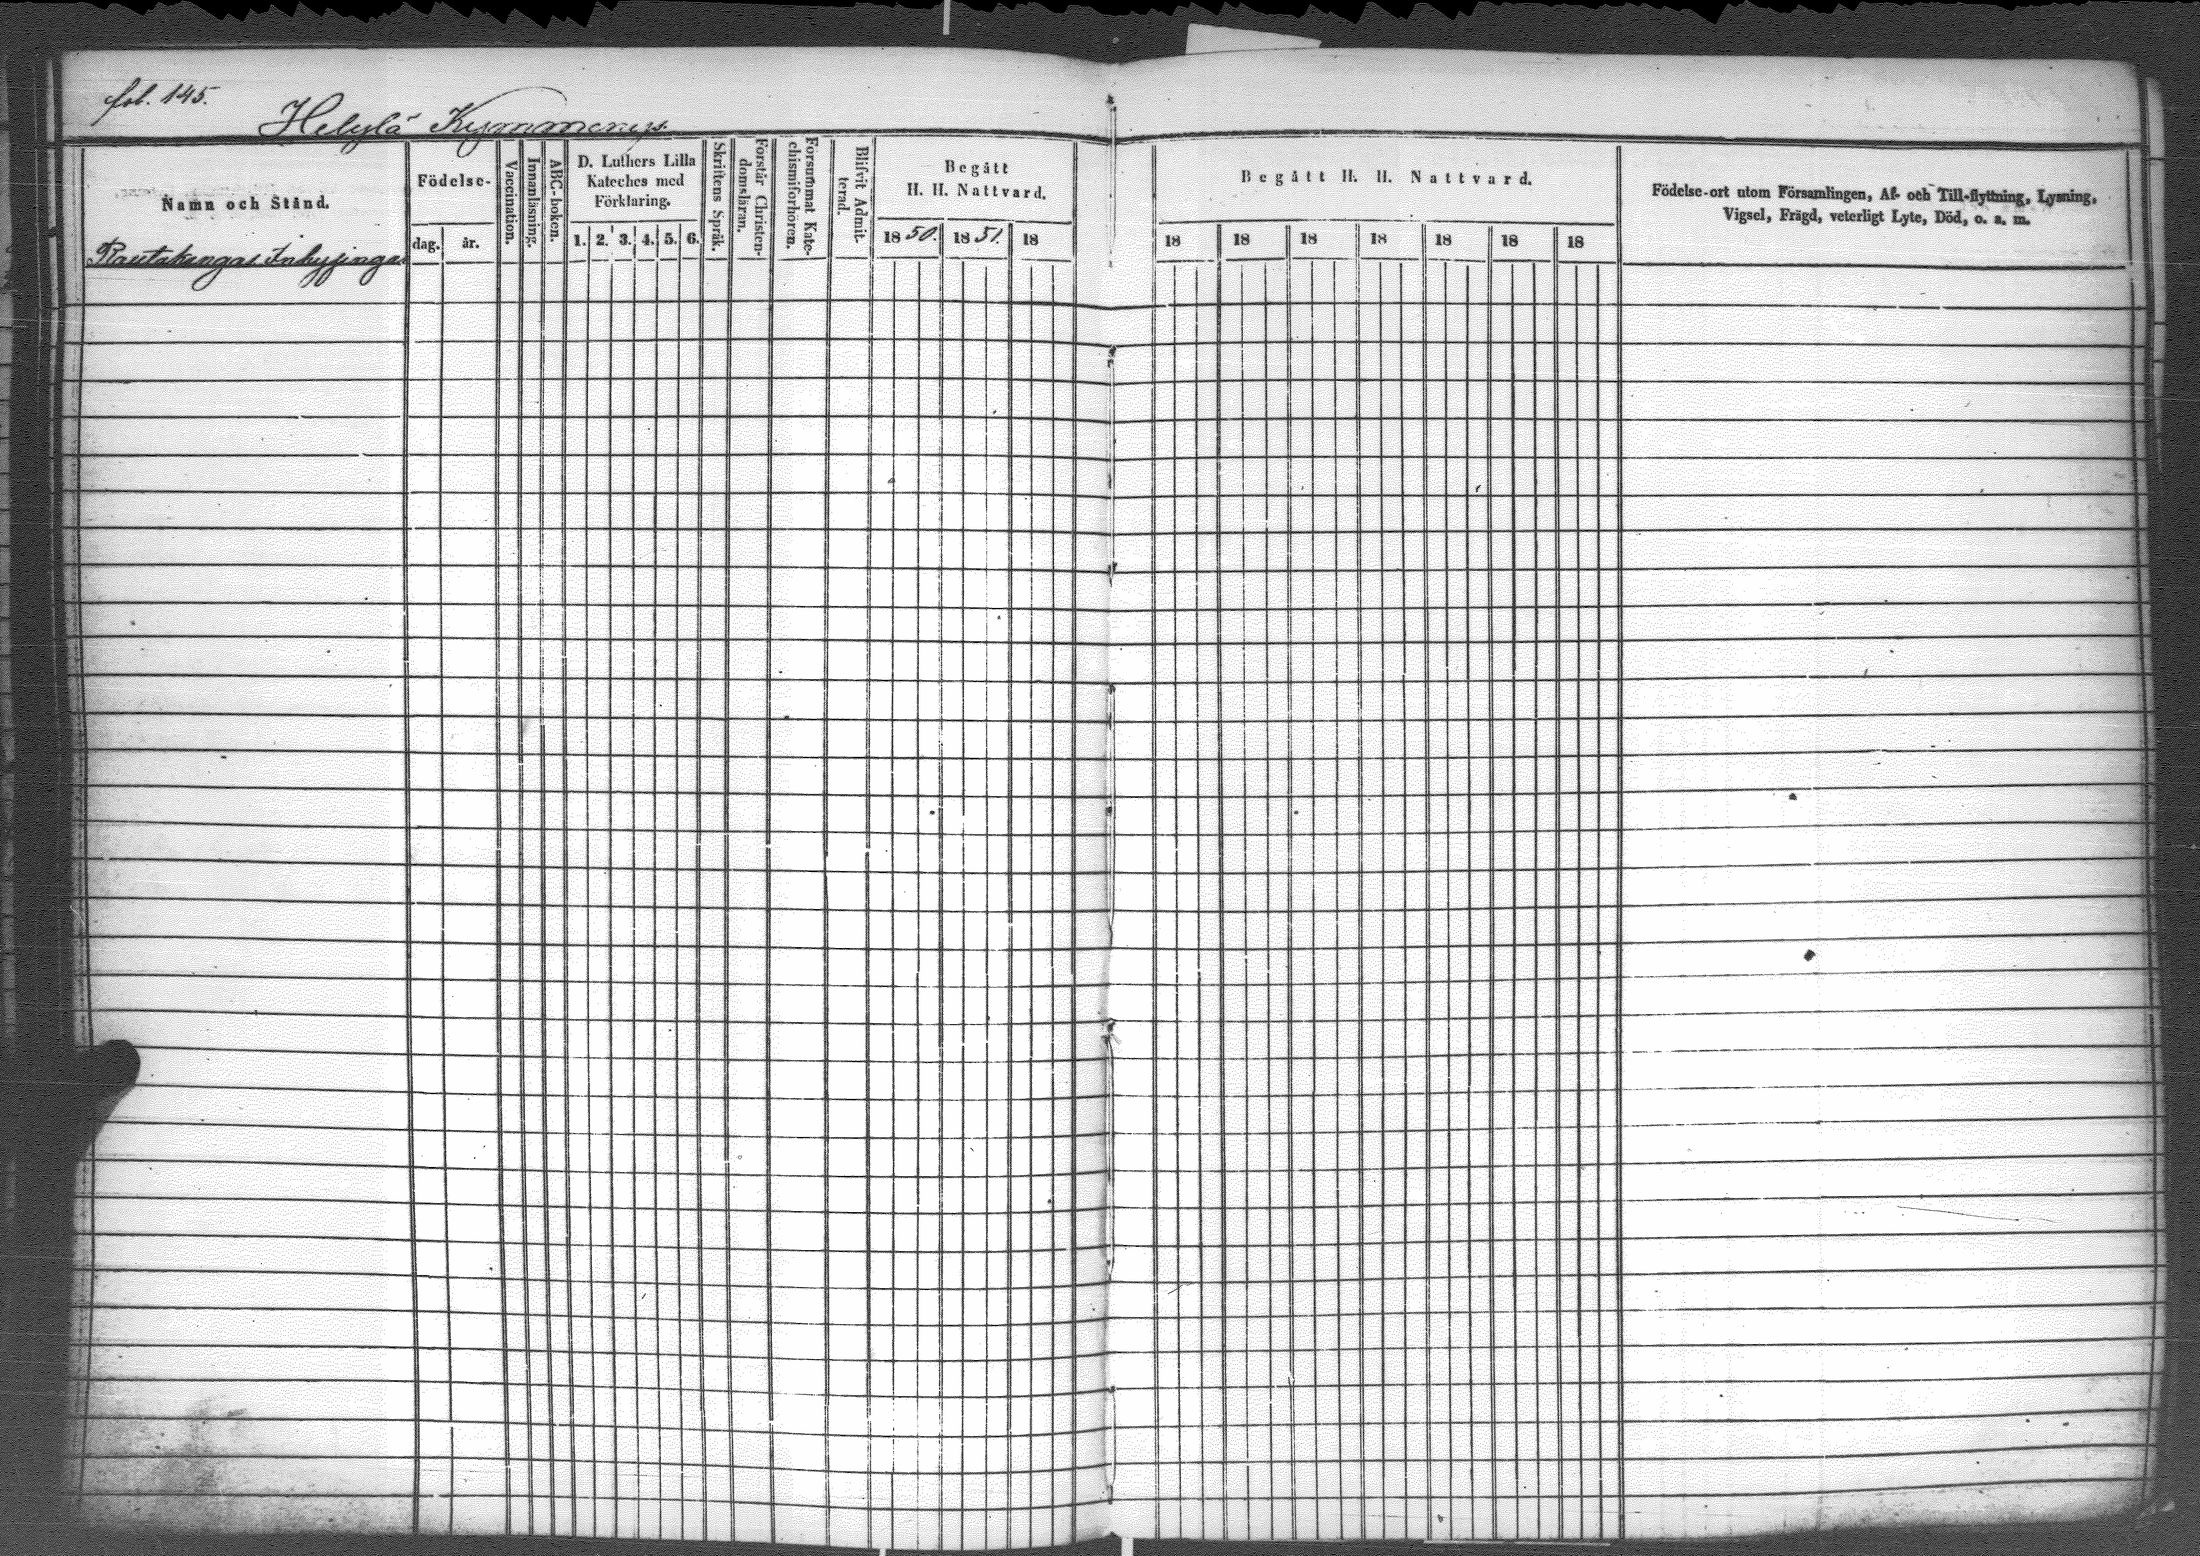 fol. 145.
Helylä Kymmenys.
Namn och Stånd.
Födelse-
dag. år.
Vaccination.
Innanläsning.
ABC-boken.
D. Luthers Lilla
Kateches med
Förklaring.
1. 2. 3. 4. 5. 6.
Skriftens Språk.
Förstår Christen-
domsläran.
Försummat Kate-
chismiförhören.
Blifvit Admit-
terad.
Begått
H. H. Nattvard.
18 50. 18 51. 18
Rautakangas Inhysingar
Begått H. H. Nattvard.
18 18 18 18 18 18 18
Födelse-ort utom Församlingen, Af- och Till-flyttning, Lysning,
Vigsel, Frägd, veterligt Lyte, Död, o. a. m.